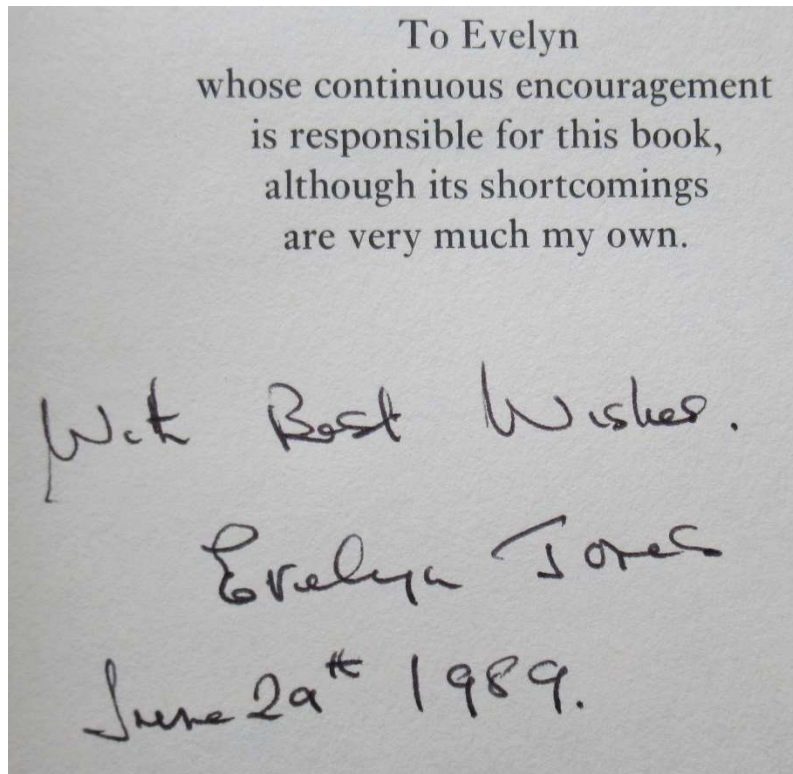 To Evelyn
whose continuous encouragement
is responsible for this book,
although its shortcomings
are very much my own.
With Best Wishes.
Evelyn Jones
June 29th 1989.